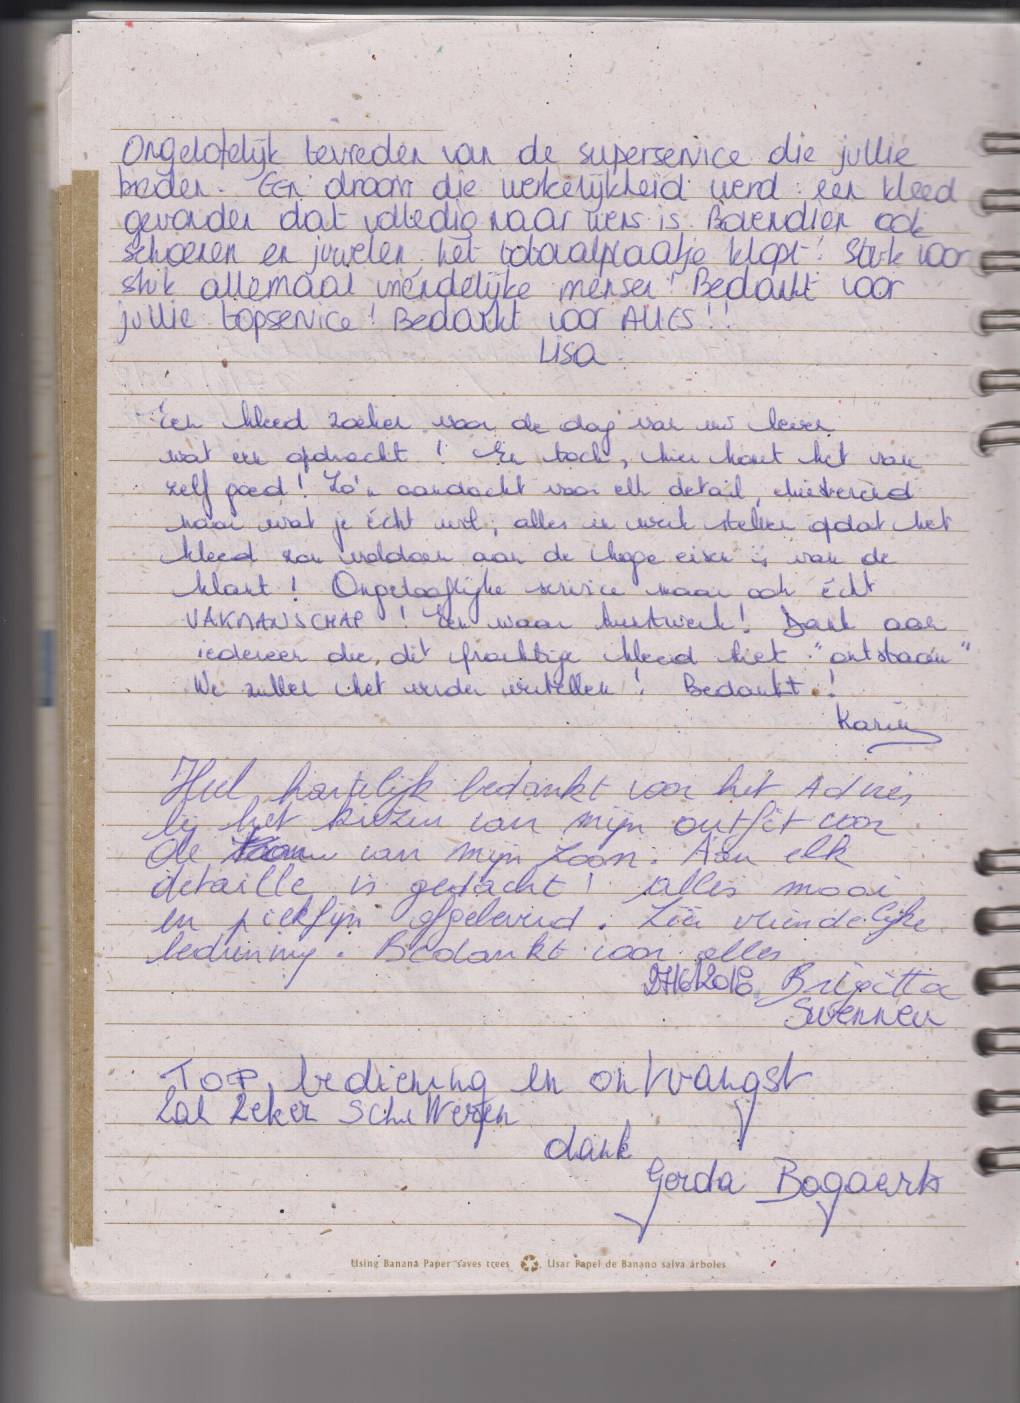 Ongelofelijk tevreden van de superservice die jullie
bieden. Een droom die werkelijkheid werd: een kleed
gevonden dat volledig naar wens is. Bovendien ook
schoenen en juwelen het totaalplaatje klopt! Stuk voor
stuk allemaal vriendelijke mensen! Bedankt voor
jullie topservice! Bedankt voor ALLES!!
Lisa.
Een kleed zoeken voor de dag van uw leven
wat een opdracht! En toch, hier komt het van
zelf goed! Zo'n aandacht voor elk detail, luisterend
naar wat je écht wil, alles in werk stellen opdat het
kleed zou voldoen aan de hoge eisen van de
klant! Ongelooflijke service maar ook écht
VAKMANSCHAP! Een waar kunstwerk! Dank aan
iedereen die dit prachtige kleed liet "ontstaan"
We zullen het verder vertellen! Bedankt!
Karin
Heel hartelijk bedankt voor het Advies
bij het kiezen van mijn outfit voor
de van mijn zoon. Aan elk
detaille is gedacht! alles mooi
en piekfijn afgeleverd. Zeer vriendelijke
bediening. Bedankt voor alles
27/6/2018 Brigitta
Swennen
TOP bediening en ontvangst
Zal zeker
dank
Gerda Bogaerts
Using Banana Paper saves trees Usar Papel de Banano salva árboles